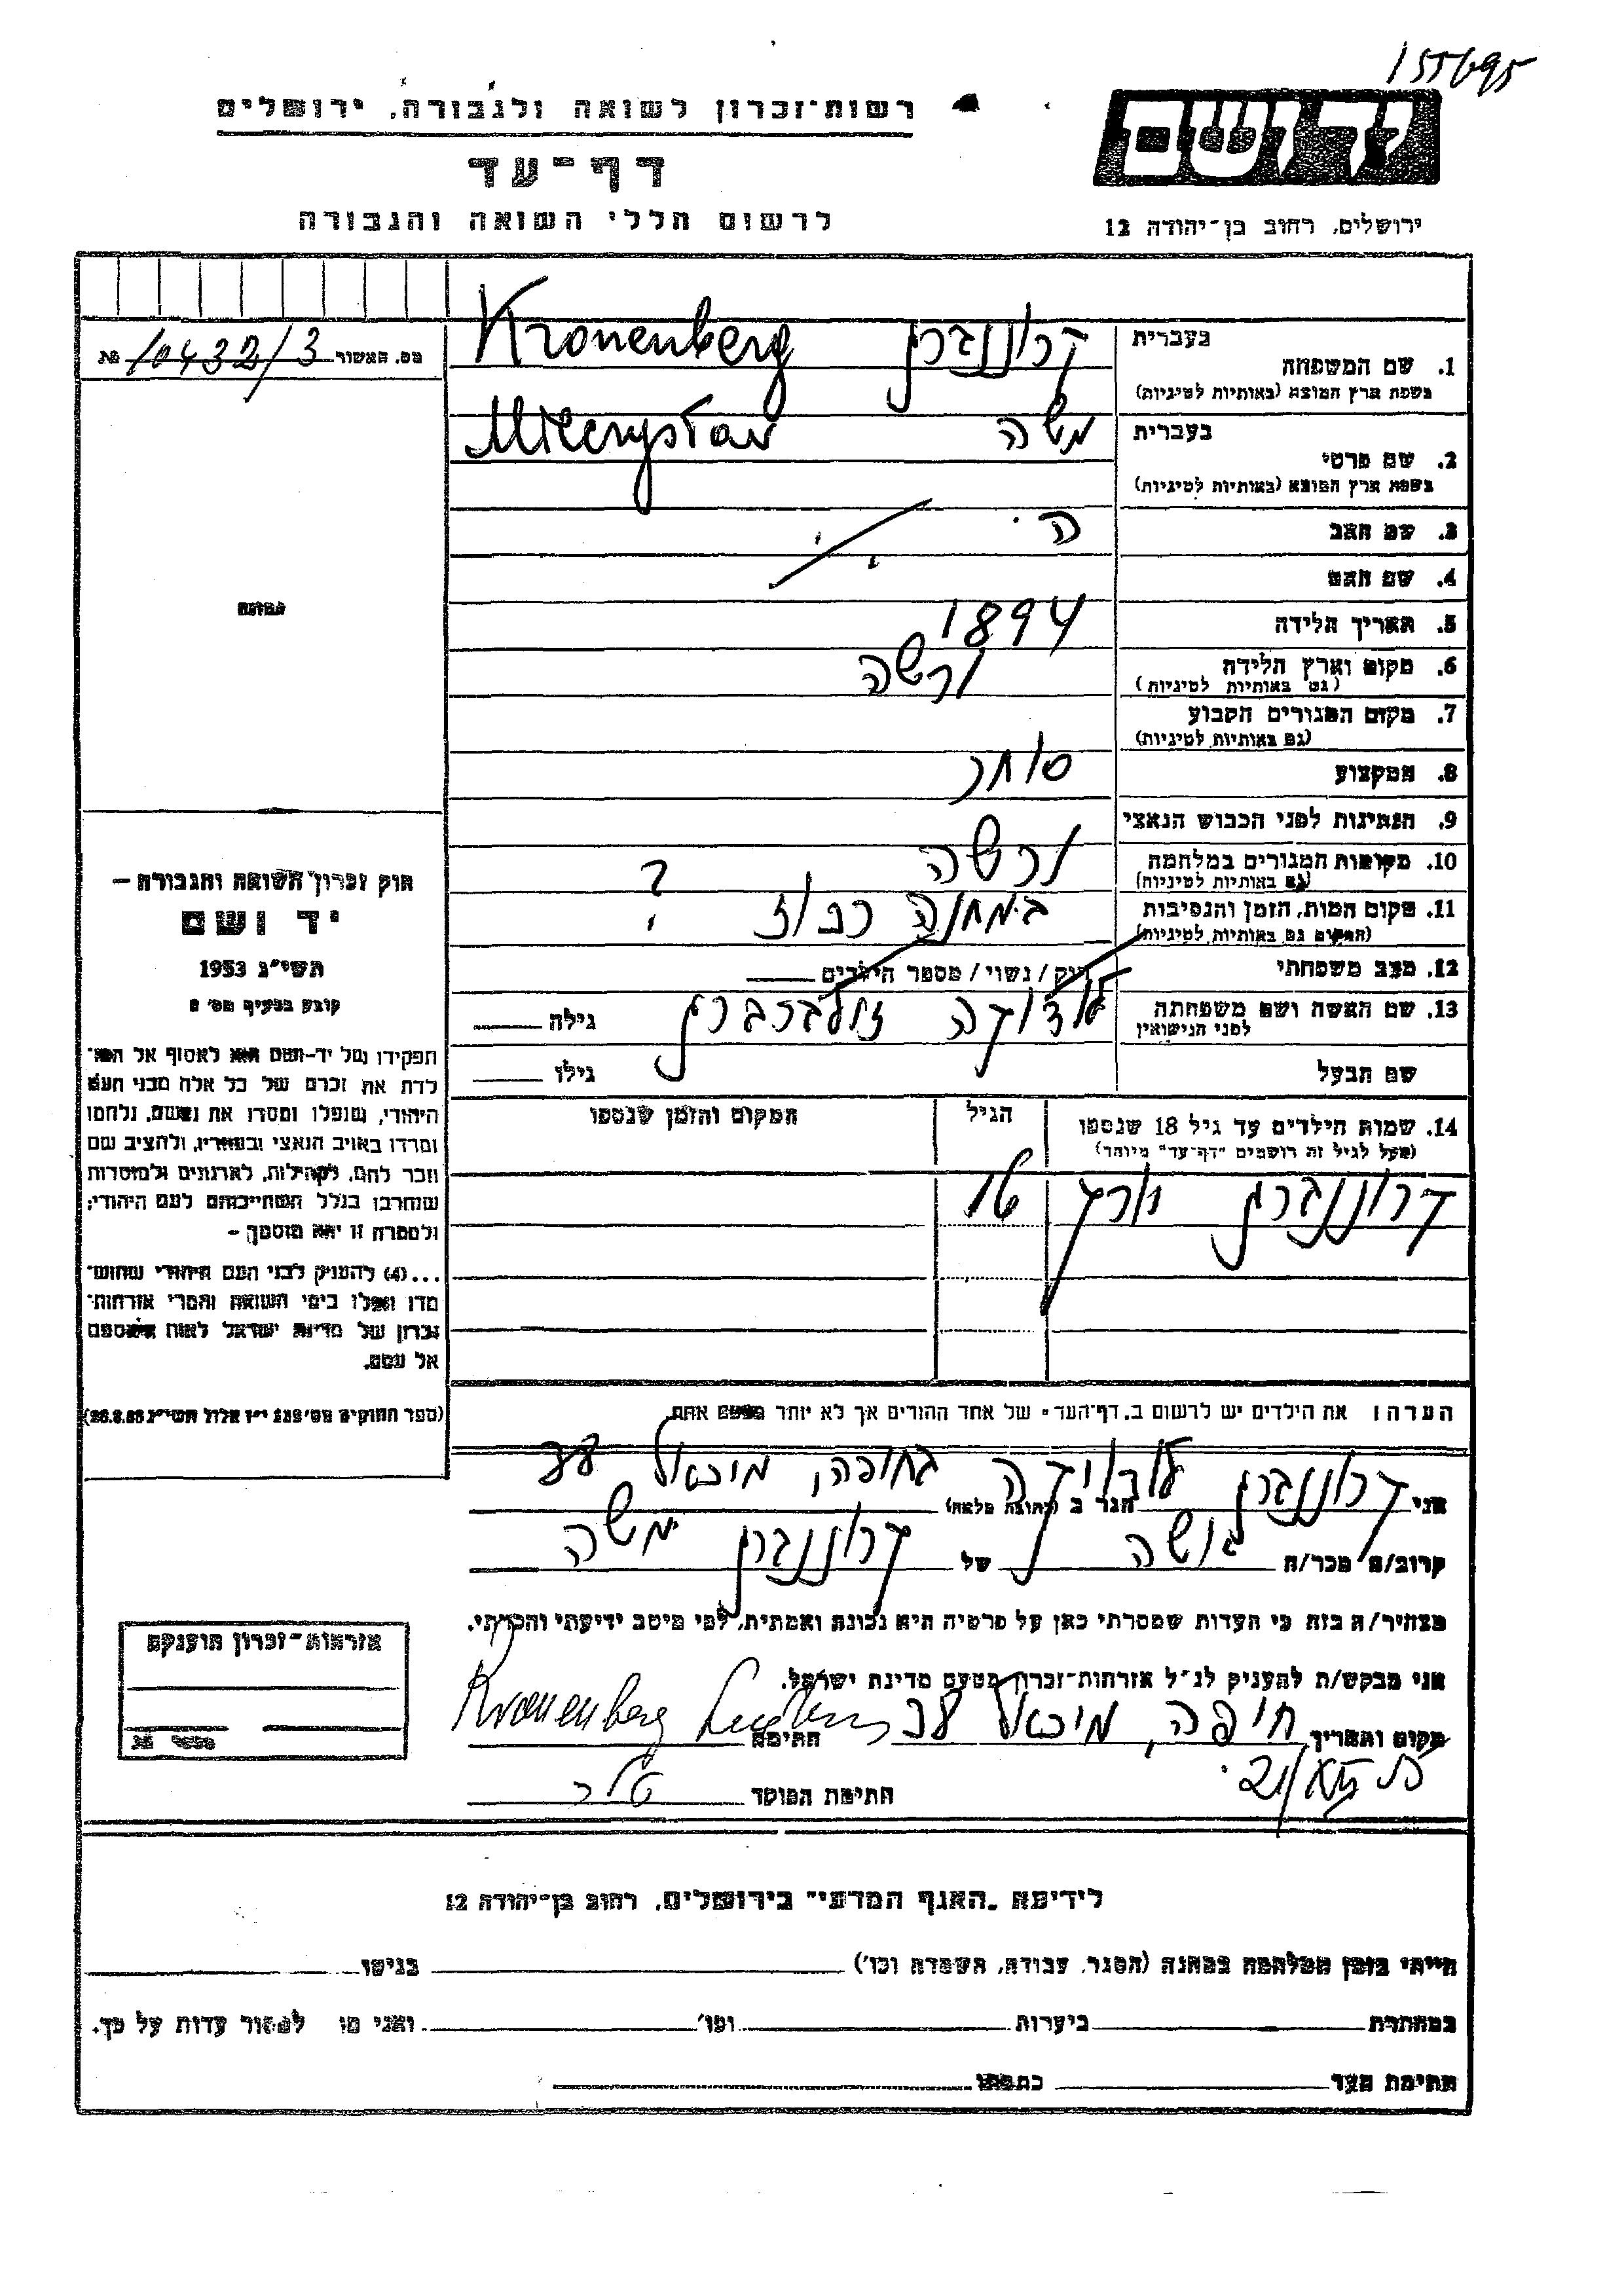 155695
רשות־זכרון לשואה ולגבורה, ירושלים
יד ושם
דף־עד
לרשום חללי השואה והגבורה
ירושלים, רחוב בן־יהודה 12
מס. האשור 10432/3
בעברית קרוננברג Kronenberg
1. שם המשפחה
בשפת ארץ המוצא (באותיות לטיניות)
בעברית משה Mieczysław
2. שם פרטי
בשפת ארץ המוצא (באותיות לטיניות)
3. שם האב
4. שם האם
5. תאריך הלידה 1894
6. מקום וארץ הלידה ורשה
(גם באותיות לטיניות)
7. מקום המגורים הקבוע
(גם באותיות לטיניות)
8. המקצוע סוחר
9. הנתינות לפני הכבוש הנאצי
10. מקומות המגורים במלחמה ורשה
(גם באותיות לטיניות)
11. מקום המות, הזמן והנסיבות במחנה רכוז ?
(המקום גם באותיות לטיניות)
12. מצב משפחתי רוק / נשוי / מספר הילדים
13. שם האשה ושם משפחתה זילברברג גילה
לפני הנישואין
שם הבעל גילו
14. שמות הילדים עד גיל 18 שנספו הגיל המקום והזמן שנספו
(מעל לגיל זה רושמים "דף־עד" מיוחד)
קרוננברג 16
תמונה
חוק זכרון השואה והגבורה –
יד ושם
תשי"ג 1953
קובע בסעיף מס' 2
תפקידו של יד־ושם הוא לאסוף אל המו־
לדת את זכרם של כל אלה מבני העם
היהודי, שנפלו ומסרו את נפשם, נלחמו
ומרדו באויב הנאצי ובעוזריו, ולהציב שם
וזכר להם, לקהילות, לארגונים ולמוסדות
שנחרבו בגלל השתייכותם לעם היהודי;
ולמטרה זו יהא מוסמך –
...(4) להעניק לבני העם היהודי שהוש־
מדו ונפלו בימי השואה והמרי אזרחות־
זכרון של מדינת ישראל לאות היאספם
אל עמם.
(ספר החוקים מס' 132 י"ז אלול תשי"ג 28.8.53)
הערה: את הילדים יש לרשום ב"דף־העד" של אחד ההורים אך לא יותר מפעם אחת
אני קרוננברג לודויקה הגר ב (כתובת מלאה) בחיפה, מיכאל
קרוב/ה מכר/ה אשה של קרוננברג משה
מצהיר/ה בזה כי העדות שמסרתי כאן על פרטיה היא נכונה ואמתית, לפי מיטב ידיעתי והכרתי.
אני מבקש/ת להעניק לנ"ל אזרחות־זכרון מטעם מדינת ישראל.
מקום ותאריך חיפה, מיכאל חתימה Kronenberg
חתימת המוסד
אזרחות־זכרון הוענקה
לידיעת "האגף המדעי" בירושלים, רחוב בן־יהודה 12
הייתי בזמן המלחמה במחנה (הסגר, עבודה, השמדה וכו') בגיטו
במחתרת ביערות וכו' ואני מו למסור עדות על כך.
חתימת העד כתבתו